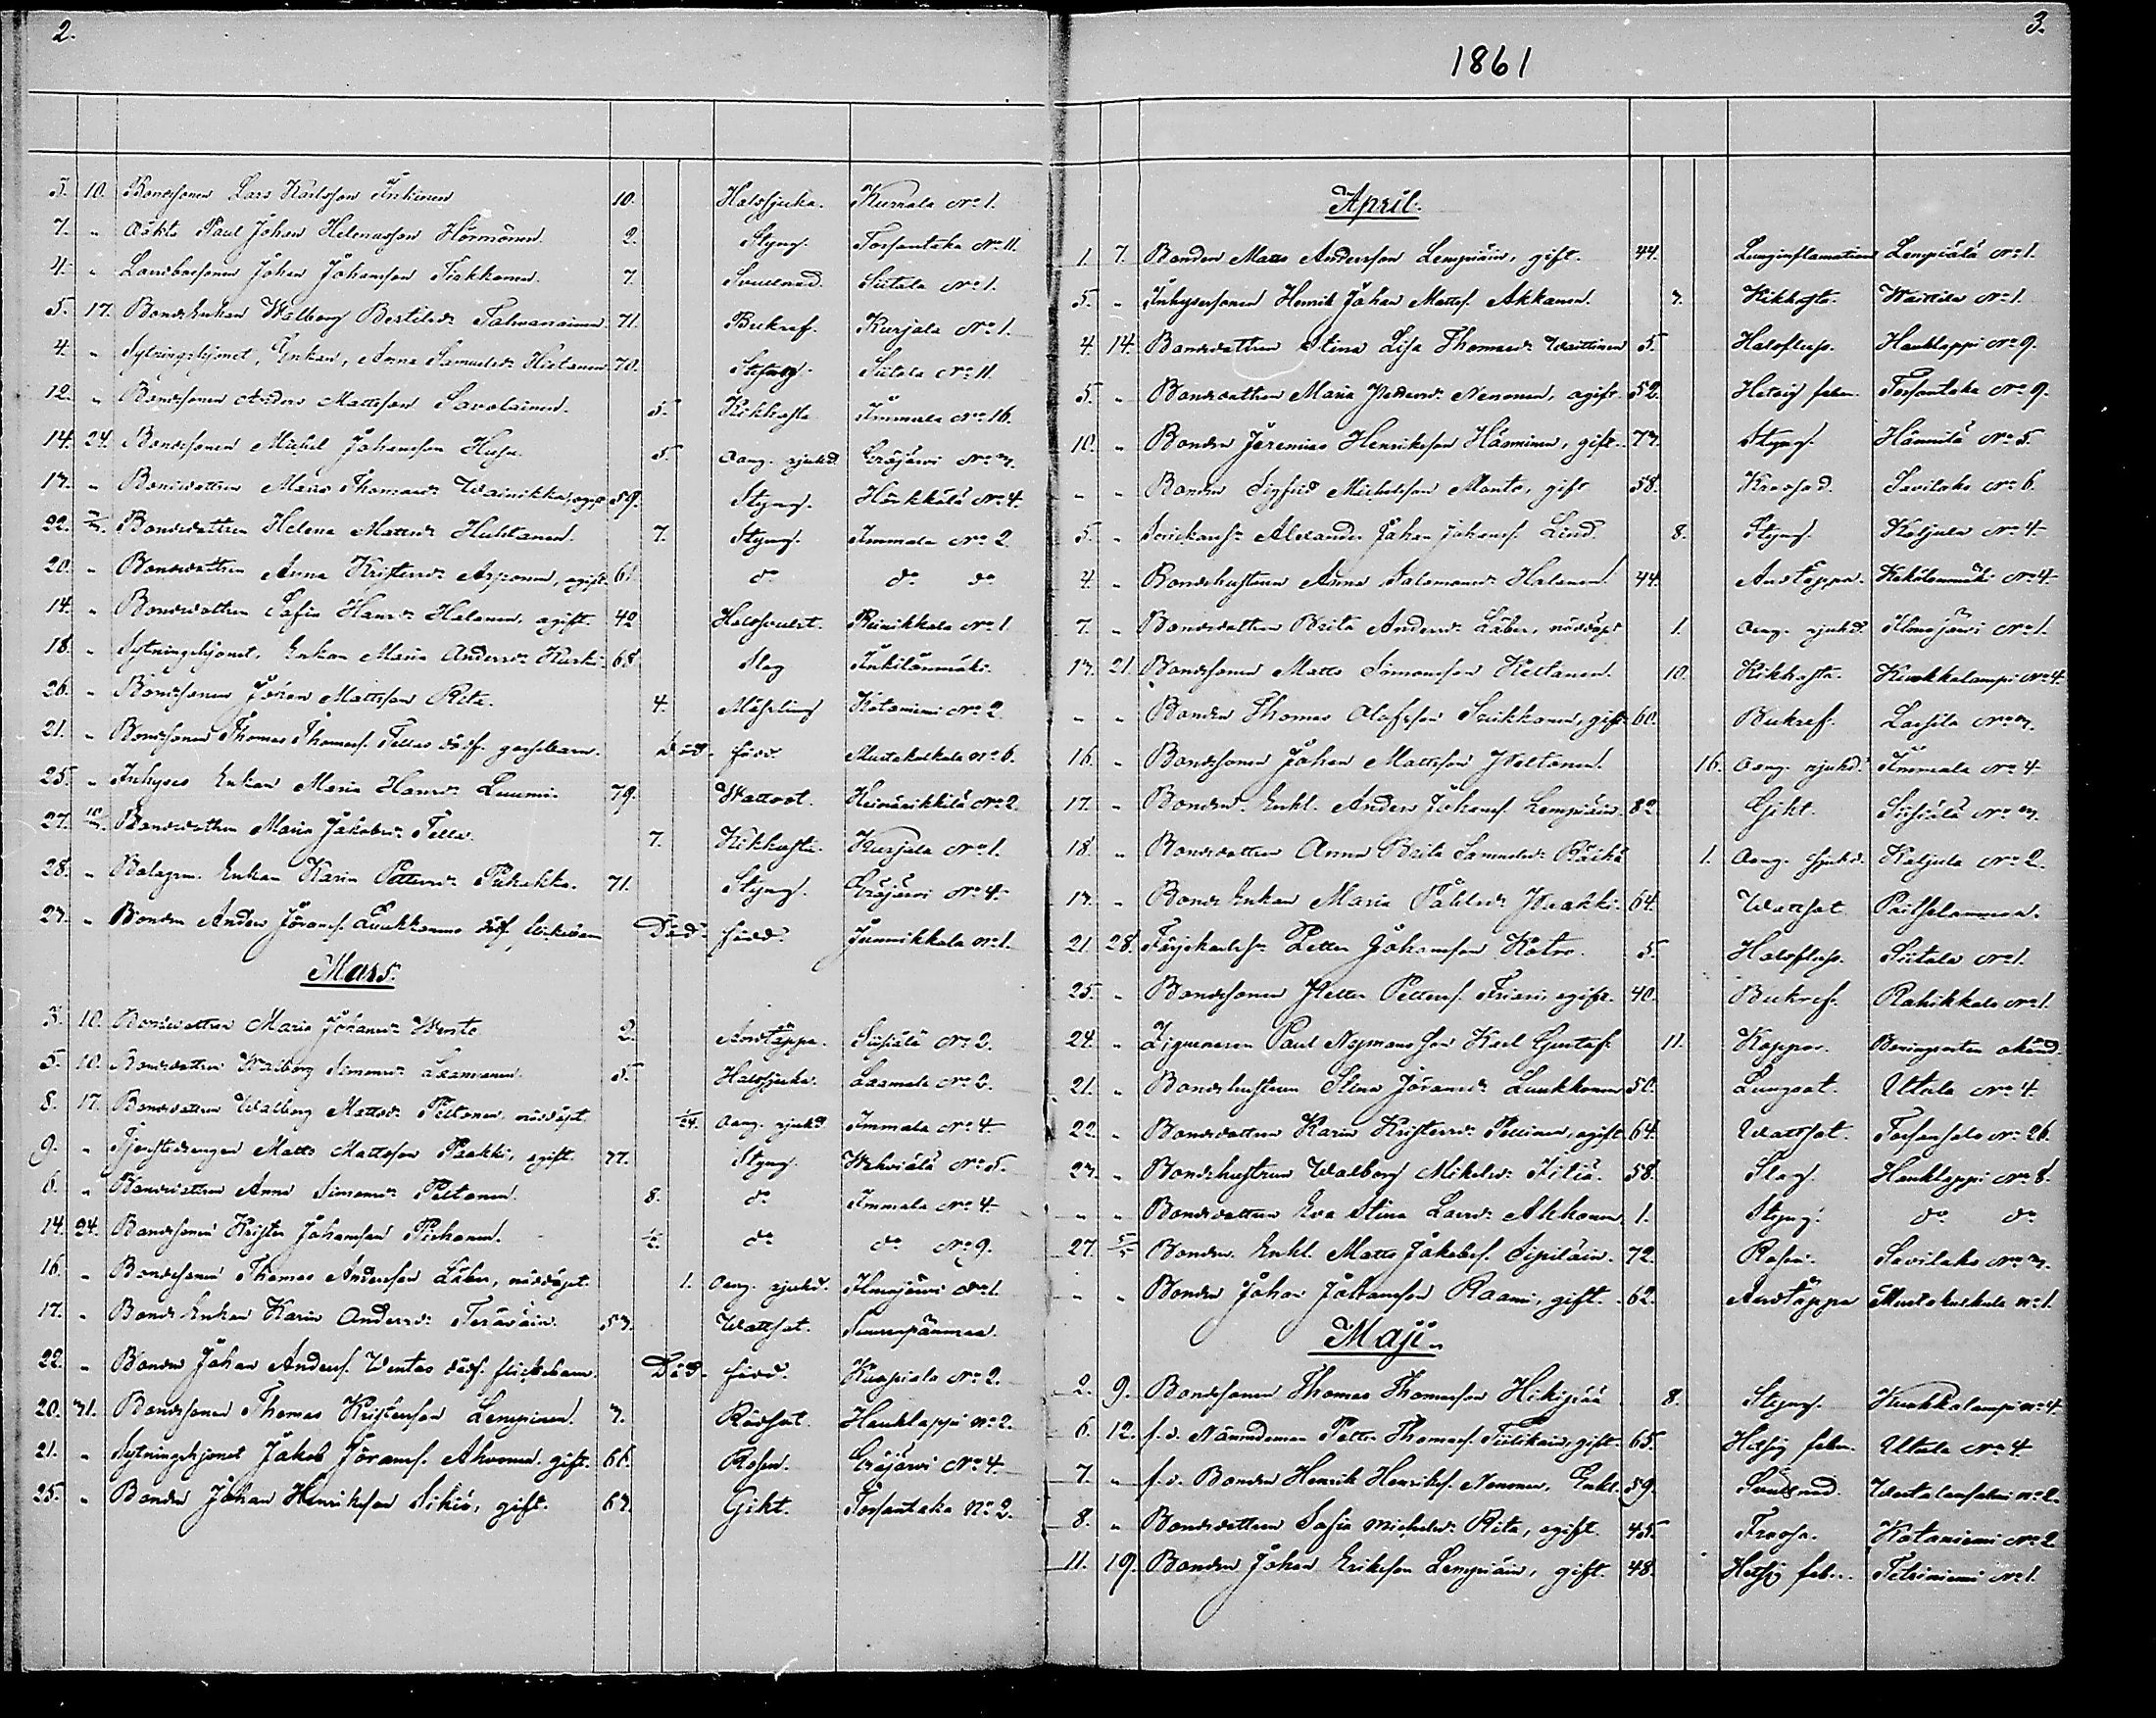 2.
3. 10. Bondesonen Lars Karlsson Inkinen 10. Halssjuka. Kumala No 1.
7. " Oäkta Paul Johan Helenasson Hörmönen. 2. Styng. Torsantaka No 11.
4. " Landbosonen Johan Johansson Tiakkanen. 7. Svullnad. Siitala No 1.
5. 17. Bonde Enkan Walborg Bertilsdr Talwanainen 71. Bukref. Kurjala No 1.
4. " Sytningshjonet, Enkan, Anna Samuelsdr Hietanen 70. Siitala No 11.
12. " Bondesonen Anders Mattsson Savolainen. 5. Kikhosta Immala No 16.
14. 24. Bondesonen Mickel Johansson Husu. 5. Oang. sjukd. Gräjärvi No 3.
17. " Bondedottren Maria Thomasdr Wainikka, ogift 59. Styng. Härkkälä No 4.
22. 3/3. Bondedottren Helena Mattsdr Huhtanen. 7. Styng. Immala No 2.
20. " Bondedottren Anna Kristersdr Asponen, ogift. 61. do do do
14. " Bondedottren Sofia Hansdr Halonen, ogift. 42 Halssvulst. Reinikkala No 1.
18. " Sytningshjonet, Enkan Maria Andersdr Kurki. 68. Slag Inkilänmäki.
26. " Bondesonen Johan Mattsson Rita. 4. Mässling Kotaniemi No 2.
21. " Bondesonen Thomas Thomass. Tellas dödf. gossebarn. Död- född. Mustakulkala No 6.
25. " Inhyses Enkan Maria Hansdr Luumi. 79. Wattsot. Heinänikkilä No 2.
27. 10/3. Bondedottren Maria Jakobsdr Telle. 7. Kikhosta. Kurjala No 1.
28. " Enkan Karin Pettersdr Pukakka. 71. Styng. Gräjärvi No 4.
23. " Bonden Anders Jöranss. Luukkanens dödf. flickebarn Död- född. Junnikkala No 1.
Mars.
3. 10. Bondedottren Maria Johansdr Wersto 2. Andtäppa. Siisiälä No 2.
5. 10. Bondedottren Walborg Simonsdr Laamanen. 5. Halssjuka. Laamala No 2.
8. 17. Bondedottren Walborg Mattsdr Peltonen, nöddöpt. 1/24. Oang. sjukd. Immala No 4.
9. " Tjenstedrengen Matts Mattsson Paakki, ogift. 77. Styng. No 5.
6. " Bondedottren Anna Simonsdr Peltonen. 8. do Immala No 4.
14. 24. Bondesonen Krister Johansson Pirhonen. 1/2. do do No 9.
16. " Bondesonen Thomas Andersson Läber, nöddöpt. 1. Oang. sjukd. Ilmajärvi No 1.
17. " Bonde Enkan Karin Andersdr Teräväin. 53. Wattsot. Suurenpänmaa.
22. " Bonden Johan Anderss. Wentas dödf. flickebarn. Död- född. Kuopiala No 2.
20. 31. Bondesonen Thomas Kristersson Lempinen. 3. Rödsot. Hauklappi No 2.
21. " Sytningshjonet Jakob Jöranss. Ahvonen. gift. 61. Rosen. Gräjärvi No 4.
25. " Bonden Johan Henriksson Sikiö, gift. 63. Gikt. Torsantaka No 2.
3.
1861
April.
1. 7. Bonden Matts Andersson Lempiäin, gift. 44. Lunginflamation Lempiälä No 1.
5. " Inhysessonen Henrik Johan Matts. Akkanen. 3. Kikhosta. Wättilä No 1.
4. 14. Bondedottren Stina Lisa Thomasdr Waittinen 5. Halsfluss. Hauklappi No 9.
5. " Bondedottren Maria Pettersdr Nenonen, ogift. 52. Hetsig feber. Torsantaka No 9.
10. " Bonden Jeremias Henriksson Hänninen, gift. 77. Styng. Hännilä No 5.
" " Bonden Sigfrid Michelsson Monto, gift 58. Savilaks No 6.
5. " Alexander Johan Johanss. Lind. 8. Styng. Koljula No 4.
4. " Bondehustrun Anna Salomonsdr Halonen. 44. Andtäppa. Kekölenmäki No 4.
7. " Bondedottren Brita Andersdr Läber, nöddöpt 1. Oang. sjukd. Ilmajärvi No 1.
13. 21. Bondesonen Matts Simonsson Keltanen. 10. Kikhosta. Kuokkalampi No 4.
" " Bonden Thomas Olofsson Seikkanen, gift. 60. Bukref. Lahtila No 3.
16. " Bondesonen Johan Mattsson Peltonen. 16. Oang. sjukd. Immala No 4.
17. " Bonden Enkl. Anders Johanss. Lempiäin. 82. Gikt. Siisiälä No 3.
18. " Bondedottren Anna Brita Samuelsdr Räihä 1. Oang. sjukd. Koljula No 2.
13. " Bonde Enkan Maria Påhlsdr Paakki. 64. Wattsot
21. 28. Petter Johansson Kotro. 5. Halsfluss. Siitala No 1.
25. " Bondesonen Petter Petterss. Friari, ogift. 40. Bukref. Rahikkala No 1.
24. " Zigenaren Paul Nymans son Karl Gustaf. 11. Koppor. Boningsorten okänd.
21. " Bondehustrun Stina Jöransdr Luukkonen 50. Lungsot. Uttula No 4.
22. " Bondedottren Karin Kristersdr Pellinen, ogift. 64. Wattsot. Torsansalo No 26.
23. " Bondehustrun Walborg Mikelsdr Itiä. 58. Slag. Hauklappi No 8.
" " Bondedottren Eva Stina Larsdr Ahkonen. 1. Styng. do do
27. 5/5. Bonden Enkl. Matts Jakobss. Sipiläin. 72. Rosen. Savilaks No 3.
" " Bonden Johan Johansson Raami, gift. 62. Andtäppa Mustakulkala No 1.
Maji.
2. 9. Bondesonen Thomas Thomasson Hikipää 8. Styng. Kuokkalampi No 4.
6. 12. f. d. Nämndeman Petter Thomass. Tiilikain, gift. 65. Hetsig feber. Uttula No 4.
7. " f. d. Bonden Henrik Henrikss. Nenonen, Enkl. 59. Svullnad. No 2.
8. " Bondedottren Sofia Michelsdr Rita, ogift. 45. Frossa. Kotaniemi No 2.
11. 19. Bonden Johan Eriksson Lempiäin, gift. 48. Hetsig feber. Tetriniemi No 1.